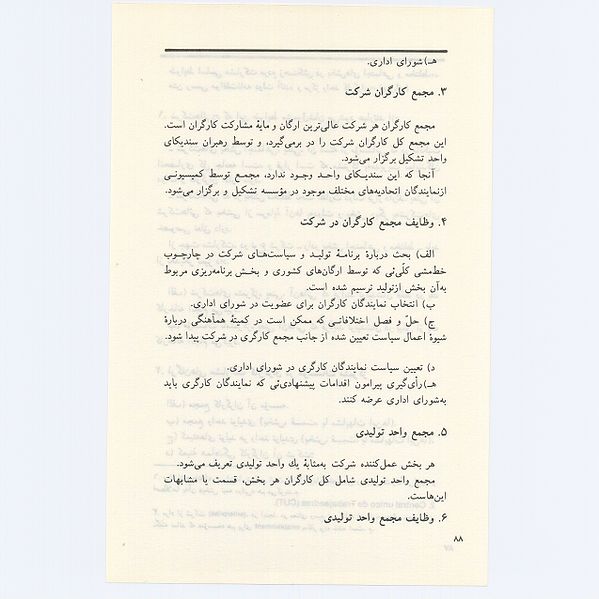 هـ) شورای اداری.
۳. مجمع کارگران شرکت
مجمع کارگران هر شرکت عالی‌ترین ارگان و مایهٔ مشارکت کارگران است.
این مجمع کل کارگران شرکت را در برمی‌گیرد، و توسط رهبران سندیکای
واحد تشکیل برگزار می‌شود.
آنجا که این سندیکای واحد وجود ندارد، مجمع توسط کمیسیونی
ازنمایندگان اتحادیه‌های مختلف موجود در مؤسسه تشکیل و برگزار می‌شود.
۴. وظایف مجمع کارگران در شرکت
الف) بحث دربارهٔ برنامهٔ تولید و سیاست‌های شرکت در چارچوب
خط‌مشی کلّی‌ئی که توسط ارگان‌های کشوری و بخش برنامه‌ریزی مربوط
به‌آن بخش ازتولید ترسیم شده است.
ب) انتخاب نمایندگان کارگران برای عضویت در شورای اداری.
ج) حلّ و فصل اختلافاتی که ممکن است در کمیتهٔ هماهنگی دربارهٔ
شیوهٔ اعمال سیاست تعیین شده از جانب مجمع کارگری در شرکت پیدا شود.
د) تعیین سیاست نمایندگان کارگری در شورای اداری.
هـ) رأی‌گیری پیرامون اقدامات پیشنهادی‌ئی که نمایندگان کارگری باید
به‌شورای اداری عرضه کنند.
۵. مجمع واحد تولیدی
هر بخش عمل‌کننده شرکت به‌مثابهٔ یك واحد تولیدی تعریف می‌شود.
مجمع واحد تولیدی شامل کل کارگران هر بخش، قسمت یا مشابهات
این‌هاست.
۶. وظایف مجمع واحد تولیدی
۸۸